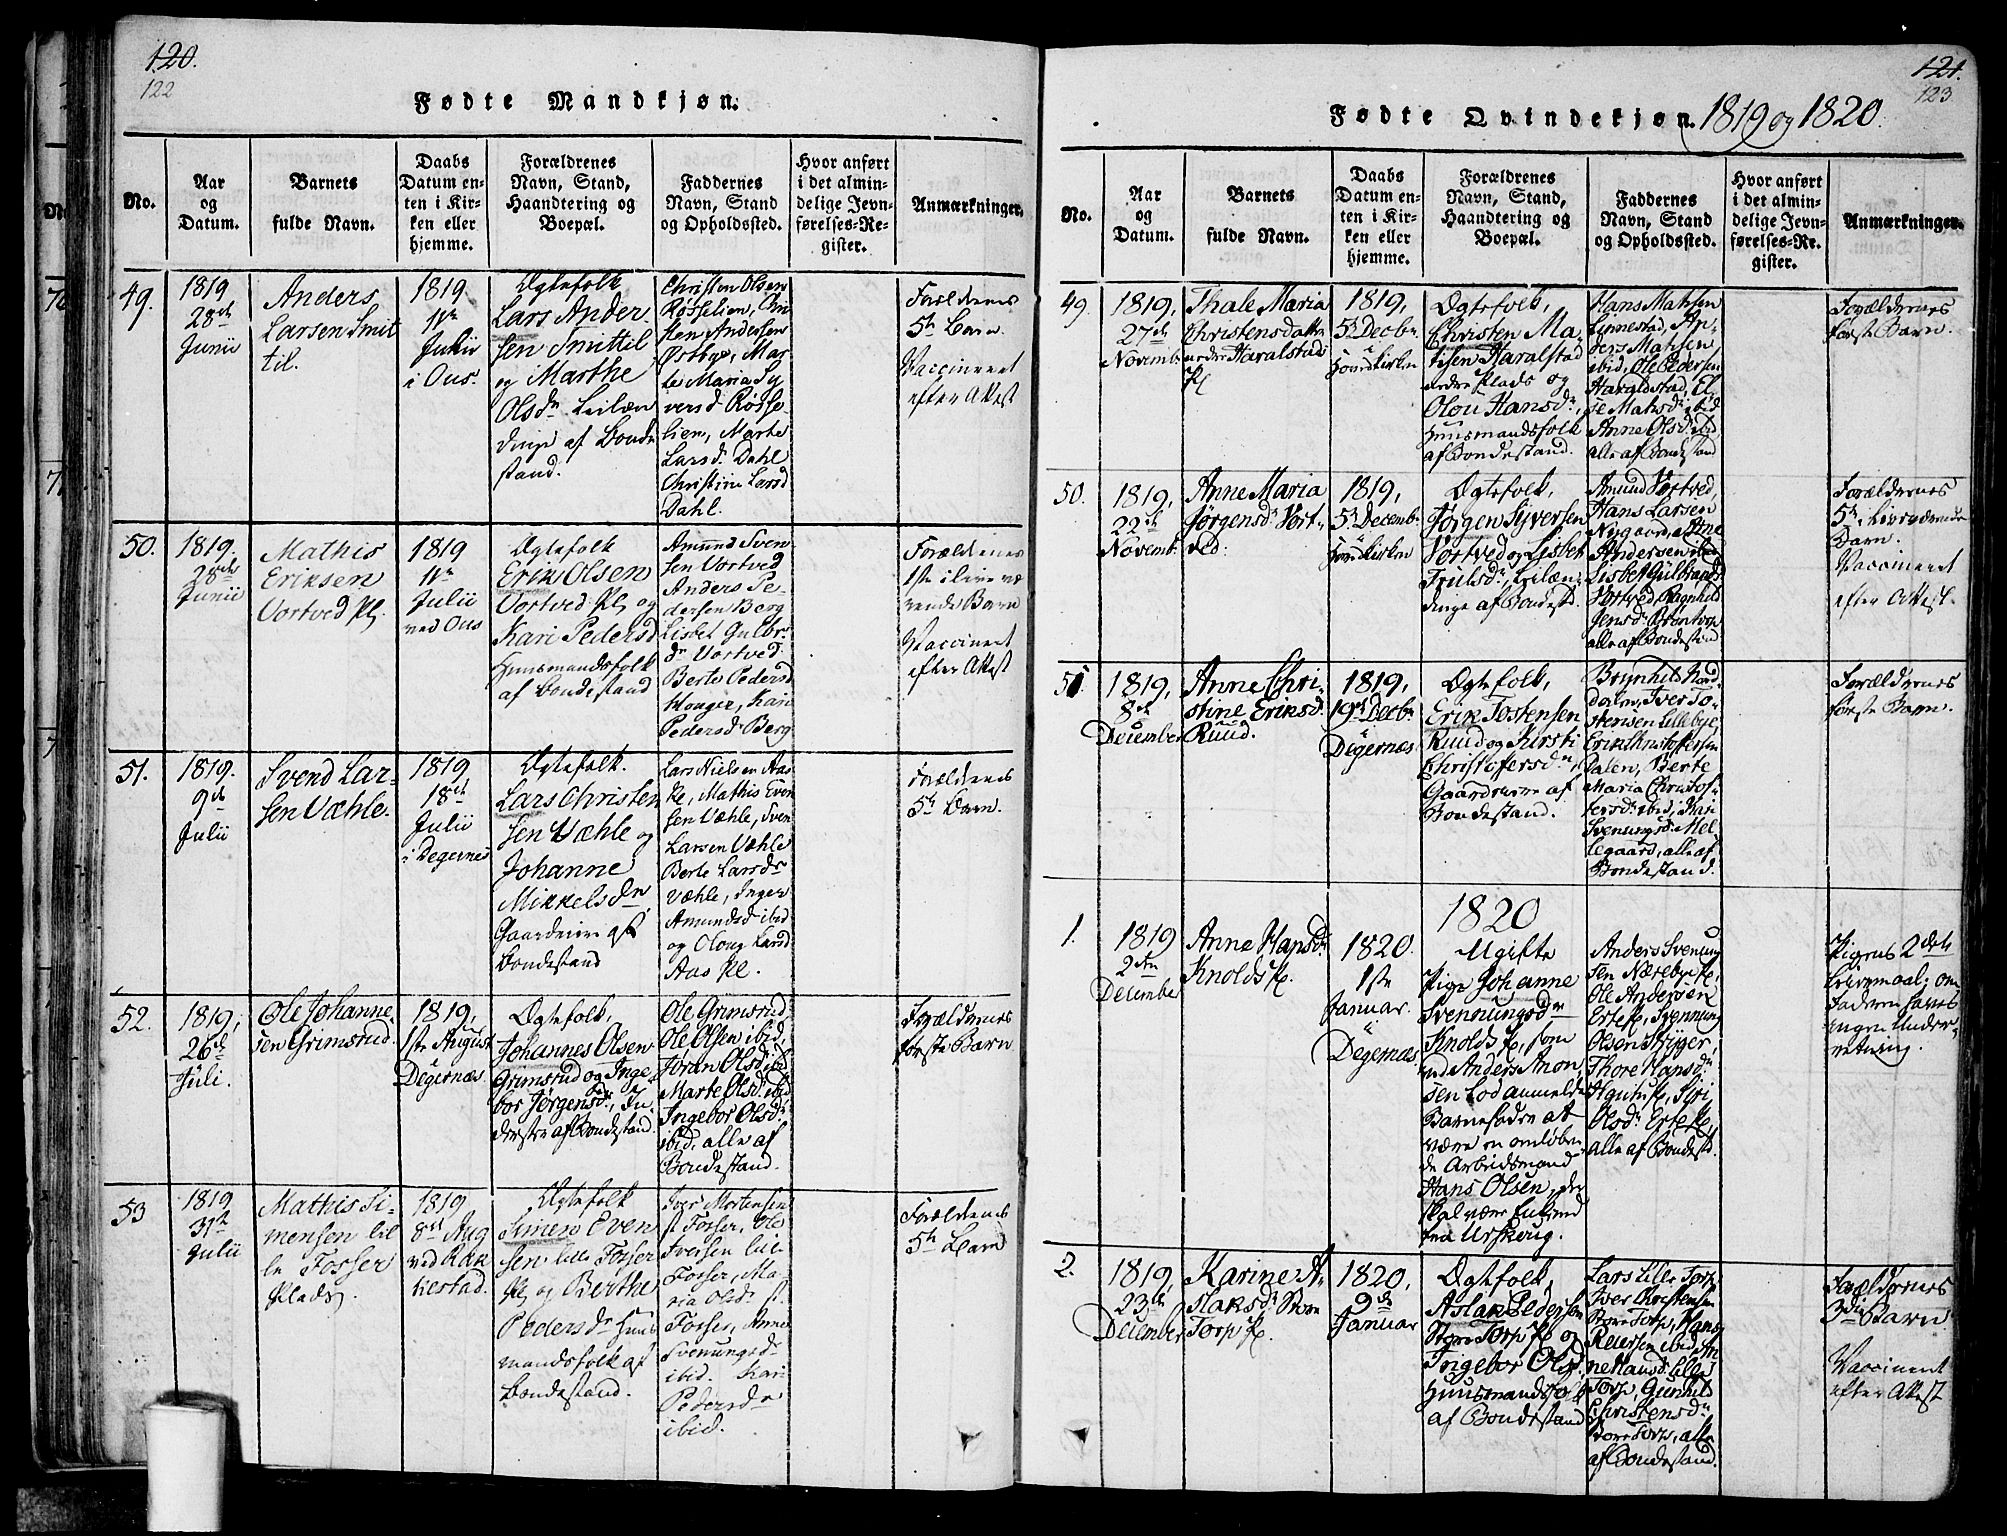 120.
122
Fødte Mandkjøn.
No.
Aar
og
Datum.
Barnets
fulde Navn.
Daabs
Datum en-
ten i Kir-
ken eller
hjemme.
Forældrenes
Navn, Stand,
Haandtering og
Boepæl.
Faddernes
Navn, Stand
og Opholdssted.
Hvor anført
i det almin-
delige Jevn-
førelses-Re-
gister.
Anmærkninger.
49.
1819
28de
Junii
Anders
Larsen Smit
til.
1819
11te
Julii
i Ous.
Ægtefolk
Lars Ander
sen Smittil
og Marthe
Olsdr. Leilæn
dinge af Bonde
stand.
Christen Olsen
Røsselien, Chri
sten Andersen
Østbye, Mar-
te Maria Sy
versd. Røsse-
lien, Marte
Larsd. Dahl
Christine Larsd
Dahl.
Forældrenes
5te Barn.
Vaccineret
efter Attest
50.
1819.
28de
Junii
Mathis
Eriksen
Vortved Pl.
1819
11te
Julii
ved Ous
Ægtefolk
Erik Olsen
Vortved Pl. og
Kari Pedersd
Huusmandsfolk
af Bondestand
Amund Sven-
sen Vortved
Anders Pe-
dersen Berg
Lisbet Gulbr.
dr. Vortved.
Berte Pedersd
Kari
Pedersd. Berg
Forældrenes
1ste i live væ
rende Barn
Vaccineret
efter Attest
51.
1819.
9de
Julii
Svend Lar-
sen Væhle.
1819
18de
Julii
i Degernes
Ægtefolk.
Lars Christen
sen Væhle og
Johanne
Mikkelsdr.
Gaardeiere af
Bondestand
Lars Nielsen Aas
Pl., Mathis Even
sen Væhle, Sven
Larsen Væhle
Berte Larsdr
Væhle, Inger
Amundsd ibid
og Oloug Larsd
Aas Pl.
Forældrenes
5te Barn.
52.
1819,
26de
Juli.
Ole Johanne-
sen Grimsrud.
1819,
1ste August
Degernæs
Ægtefolk,
Johannes Olsen
Grimsrud og Inge-
bor Jørgensdr., In-
derster af Bondestand.
Ole Grimsrud
Ole Olsen ibid,
Jøran Olsd. ibid
Marte Olsd. ibid
Ingebor Olsdr.
ibid, alle af
Bondestand.
Forældrenes
første Barn
53
1819
31te
Julii
Mathis Si-
mensen lil
le Fosser
Plads.
1819
8de Aug
ved Rak
kestad.
Ægtefolk
Simen Even
sen lille Fosser
Pl. og Berthe
Pedersdr Huus
mandsfolk af
Bondestand.
Iver Mortensen
st. Fosser, Ole
Iversen lille
Fosser, Ma-
ria Olsdr. st.
Fosser, Anne
Svenungsd-
ibid. Kari
Pedersdr
ibid.
Forældrenes
5te Barn
121.
123
Fødte Qvindekjøn. 1819 og 1820.
No.
Aar
og
Datum.
Barnets
fulde Navn.
Daabs
Datum en-
ten i Kir-
ken eller
hjemme.
Forældrenes
Navn, Stand,
Haandtering og
Boepæl.
Faddernes
Navn, Stand
og Opholdssted.
Hvor anført
i det almin-
delige Jevn-
førelses-Re-
gister.
Anmærkninger.
49.
1819,
27de
Novemb
Thale Maria
Christensdatter
nedre Haralstad
Pl
1819,
5te Decbr
i
Hovedkirken
Ægtefolk,
Christen Ma-
tisen Haralstad
nedre Plads og
Olou Hansdr.,
Huusmandsfolk
af Bondestand.
Hans Matisen
Linnestad, An-
ders Matisen
ibid, Ole Pedersen
Haraldstad, El-
se Matisdr. ibid
Anne Olsd. ibid
alle af Bondestand
Forældrenes
første Barn.
50.
1819,
22de
Novemb.
Anne Maria
Jørgensdr. Vort-
ved.
1819,
5te Decemb.
i
Hovedkirken
Ægtefolk,
Jørgen Syversen
Vortved og Lisbet
Trulsdr., Leilæn-
dinge af Bondestd.
Amund Vortved,
Hans Larsen
Nygaard, Arne
Andersen ibid
Lisbet Gulbrandsd
Vortved, Ragnhild
Jensdr. Brøntorp
alle af Bondestand
Forældrenes
5te i Livværende
Barn.
Vaccineret
efter Attest.
51
1819,
8de
December
Anne Chri-
stine Eriksdr.
Ruud.
1819,
19de Decbr.
i
Degernæs
Ægtefolk,
Erik Tostensen
Ruud og Kirsti
Christofersdr.,
Gaardeiere af
Bondestand.
Brynhild Nord-
dalen, Iver To-
stensen Lillebye,
Erik Christofersen
Dalen, Berte
Maria Christof-
fersdr. ibid, Kari
Svenungsd. Mel-
legaard, alle af
Bondestand.
Forældrenes
første Barn.
1820
1.
1819
2den
December
Anne Hansdr.
Knolds Pl.
1820.
1ste
Januar.
i
Degernæs
Ugifte
Pige Johanne
Svennungsdr
Knolds Pl., som
ved Anders Amon
sen Lod anmelde
Barnefader at
være en omløben
de Arbeidsmand
Hans Olsen, der
skal være
fra Urskoug.
Anders Svenung
sen Nærebye Pl.
Ole Andersen
Erte Pl., Svennung
Olsen Skiger
Thore Hansdr.
Siri
Olsdr. Erte Pl.,
alle af Bondestd.
Pigens 2det
Leiermaal; om
Faderen haves
ingen Under-
retning.
2.
1819,
23de
December
Karine A-
slaksdr. Store
Torp Pl.
1820,
9de
Januar
Ægtefolk,
Aslak Pedersen
Store Torp Pl. og
Ingebor Olsd.
Huusmandsfolk
af Bondestand
Lars Lille Torp,
Iver Christensen
Store Torp, Hans
Reiersen ibid, An
ne Hansd. Lille
Torp, Gunhild
Christensdr.
Store Torp, alle
af Bondestand.
Forældrenes
3de Barn
Vaccineret
efter Attest